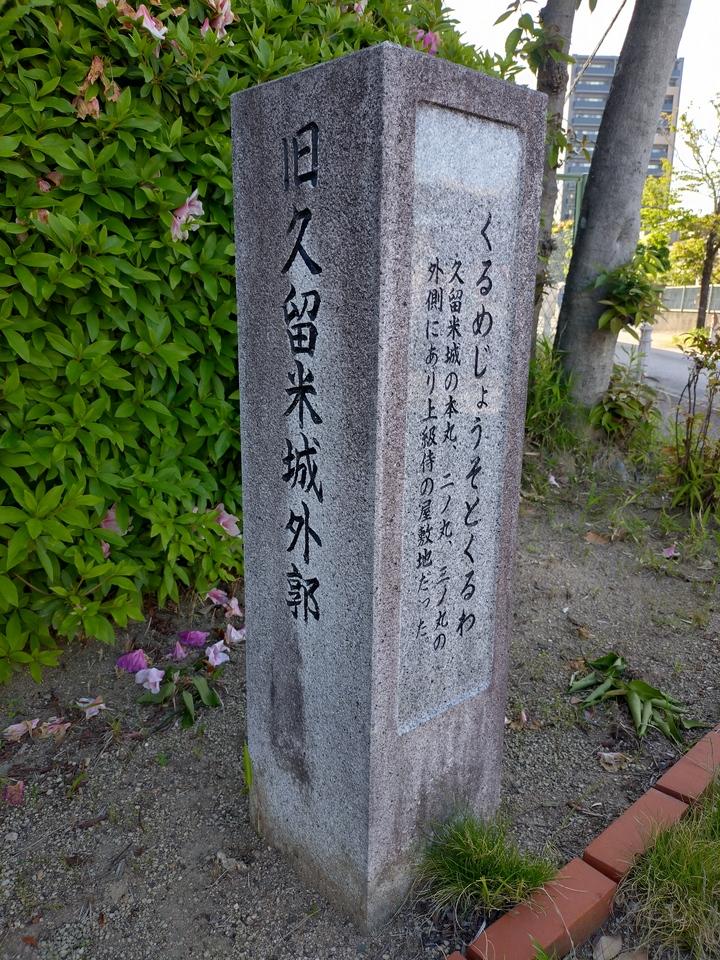 旧久留米城外郭
くるめじょうそとくるわ
久留米城の本丸、二ノ丸、三ノ丸の
外側にあり上級侍の屋敷地だった。